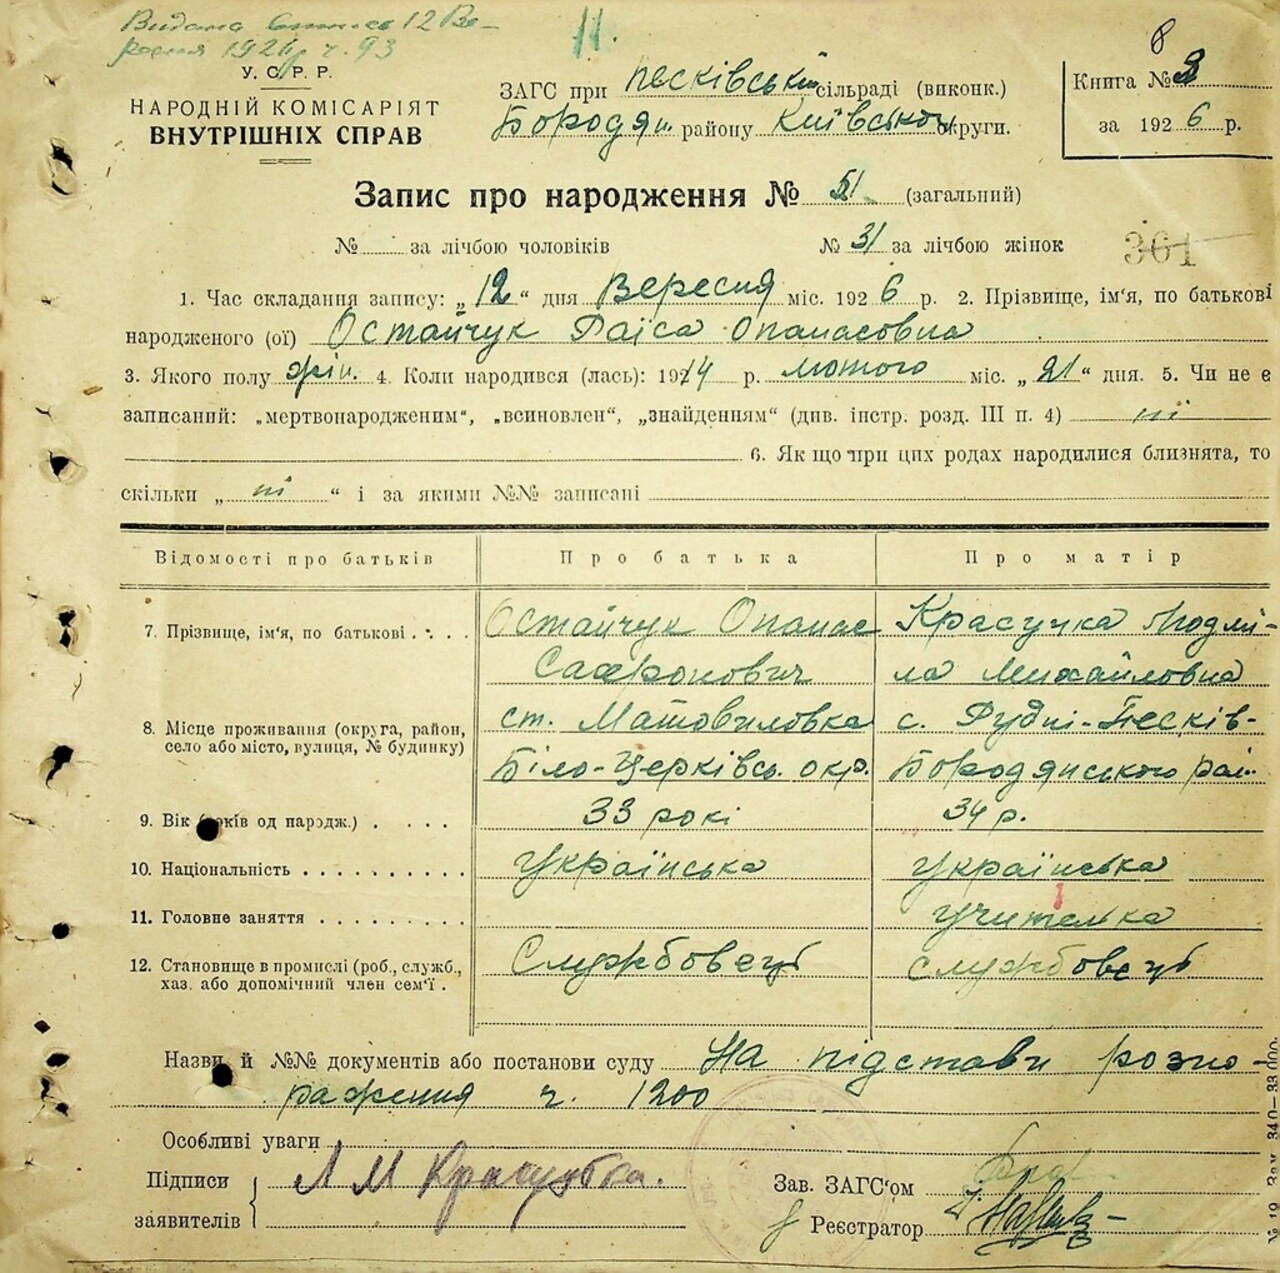 Видана виписъ 12 Ве-
ресня 1926 р ч. 93
11.
8
У. С. Р. Р.
НАРОДНІЙ КОМІСАРІЯТ
ВНУТРІШНІХ СПРАВ
ЗАГС при Песківській сільраді (виконк.)
Бородян. району Київської округи.
Книга № 3
за 1926 р.
Запис про народження № 51 (загальний)
№ за лічбою чоловіків № 31 за лічбою жінок
361
1. Час складання запису: „12“ дня Вересня міс. 1926 р. 2. Прізвище, ім'я, по батькові
народженого (ої) Остайчук Раїса Опанасовна
3. Якого полу жін. 4. Коли народився (лась): 1914 р. лютого міс. „21“ дня. 5. Чи не є
записаний: „мертвонародженим“, „всиновлен“, „знайденням“ (див. інстр. розд. III п. 4) ні
6. Як що при цих родах народилися близнята, то
скільки „ні“ і за якими №№ записані
Відомості про батьків Про батька Про матір
7. Прізвище, ім'я, по батькові . . . . Остайчук Опанас Красучка Людми-
Сафронович ла Михайловна
8. Місце проживання (округа, район, ст. Мотовиловка с. Рудні-Песків-
село або місто, вулиця, № будинку) Біло-Церківсь. окр. Бородянського рай.
9. Вік (років од народж.) . . . . 33 рокі 34 р.
10. Національність . . . . . . . . . . Українська Українська
11. Головне заняття . . . . . . . . . Учителька
12. Становище в промислі (роб., служб., Службовець службовець
хаз. або допомічний член сем'ї .
Назви й №№ документів або постанови суду На підстави розпо-
раження ч. 1200
Особливі уваги
Підписи Л М Красучка.
заявителів
Зав. ЗАГС'ом
Реєстратор